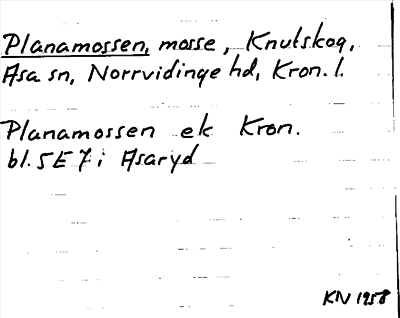 Planamossen, mosse, Knutskog,
Asa sn, Norrvidinge hd, Kron. l.
Planamossen ek Kron.
bl. 5E7i Asaryd
KN 1958